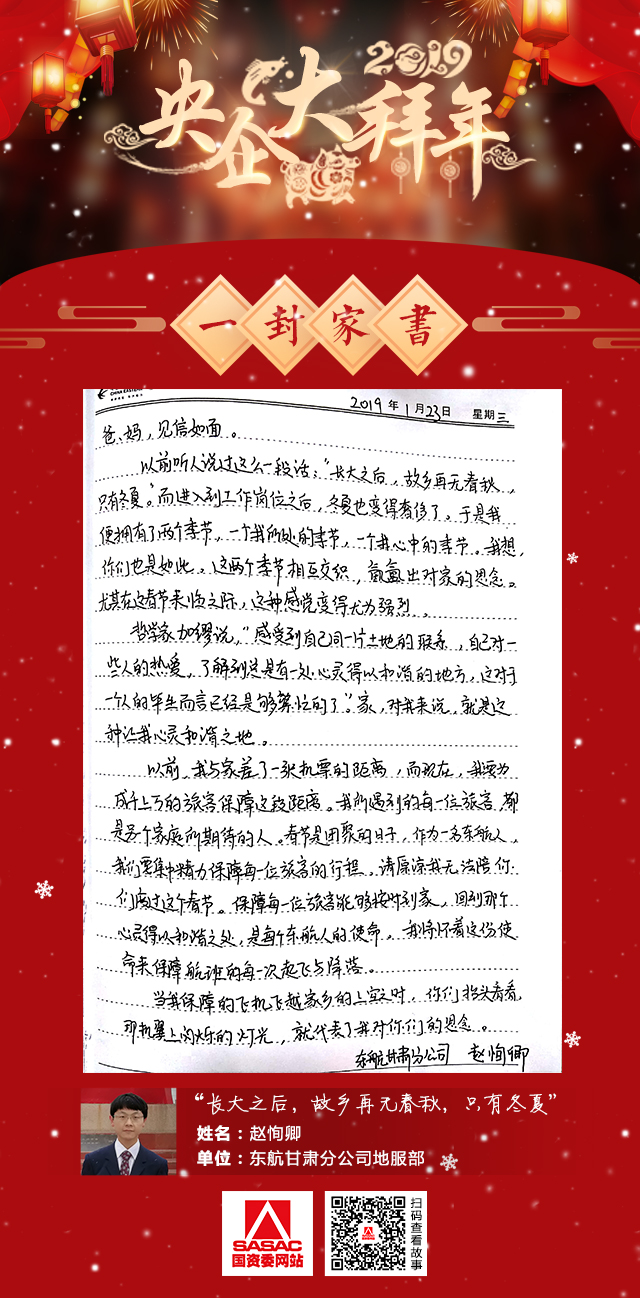 2019
央企大拜年
一封家书
CHINA EASTERN
2019年1月23日 星期三
爸、妈，见信如面。
以前听人说过这么一段话：“长大之后，故乡再无春秋，
只有冬夏。”而进入到工作岗位之后，冬夏也变得奢侈了。于是我
便拥有了两个季节，一个我所处的季节，一个我心中的季节。我想，
你们也是如此。这两个季节相互交织，氤氲出对家的思念。
尤其在这春节来临之际，这种感觉变得尤为强烈。
哲学家加缪说，“感受到自己同一片土地的联系，自己对一
些人的热爱，了解到总是有一处心灵得以和谐的地方，这对于
一个人的毕生而言已经是够繁忙的了”。家，对我来说，就是这
种让我心灵和谐之地。
以前，我与家差了一张机票的距离，而现在，我要为
成千上万的旅客保障这段距离。我所遇到的每一位旅客，都
是另个家庭所期待的人。春节是团聚的日子，作为一名东航人，
我们要集中精力保障每一位旅客的行程。请原谅我无法陪你
们度过这个春节。保障每一位旅客能够按时到家，回到那个
心灵得以和谐之处，是每个东航人的使命，我将怀着这份使
命来保障航班的每一次起飞与降落。
当我保障的飞机飞越家乡的上空之时，你们抬头看看，
那机翼上闪烁的灯光，就代表了我对你们的思念。
东航甘肃分公司 赵恂卿
“长大之后，故乡再无春秋，只有冬夏”
姓名：赵恂卿
单位：东航甘肃分公司地服部
SASAC
国资委网站
扫码查看故事